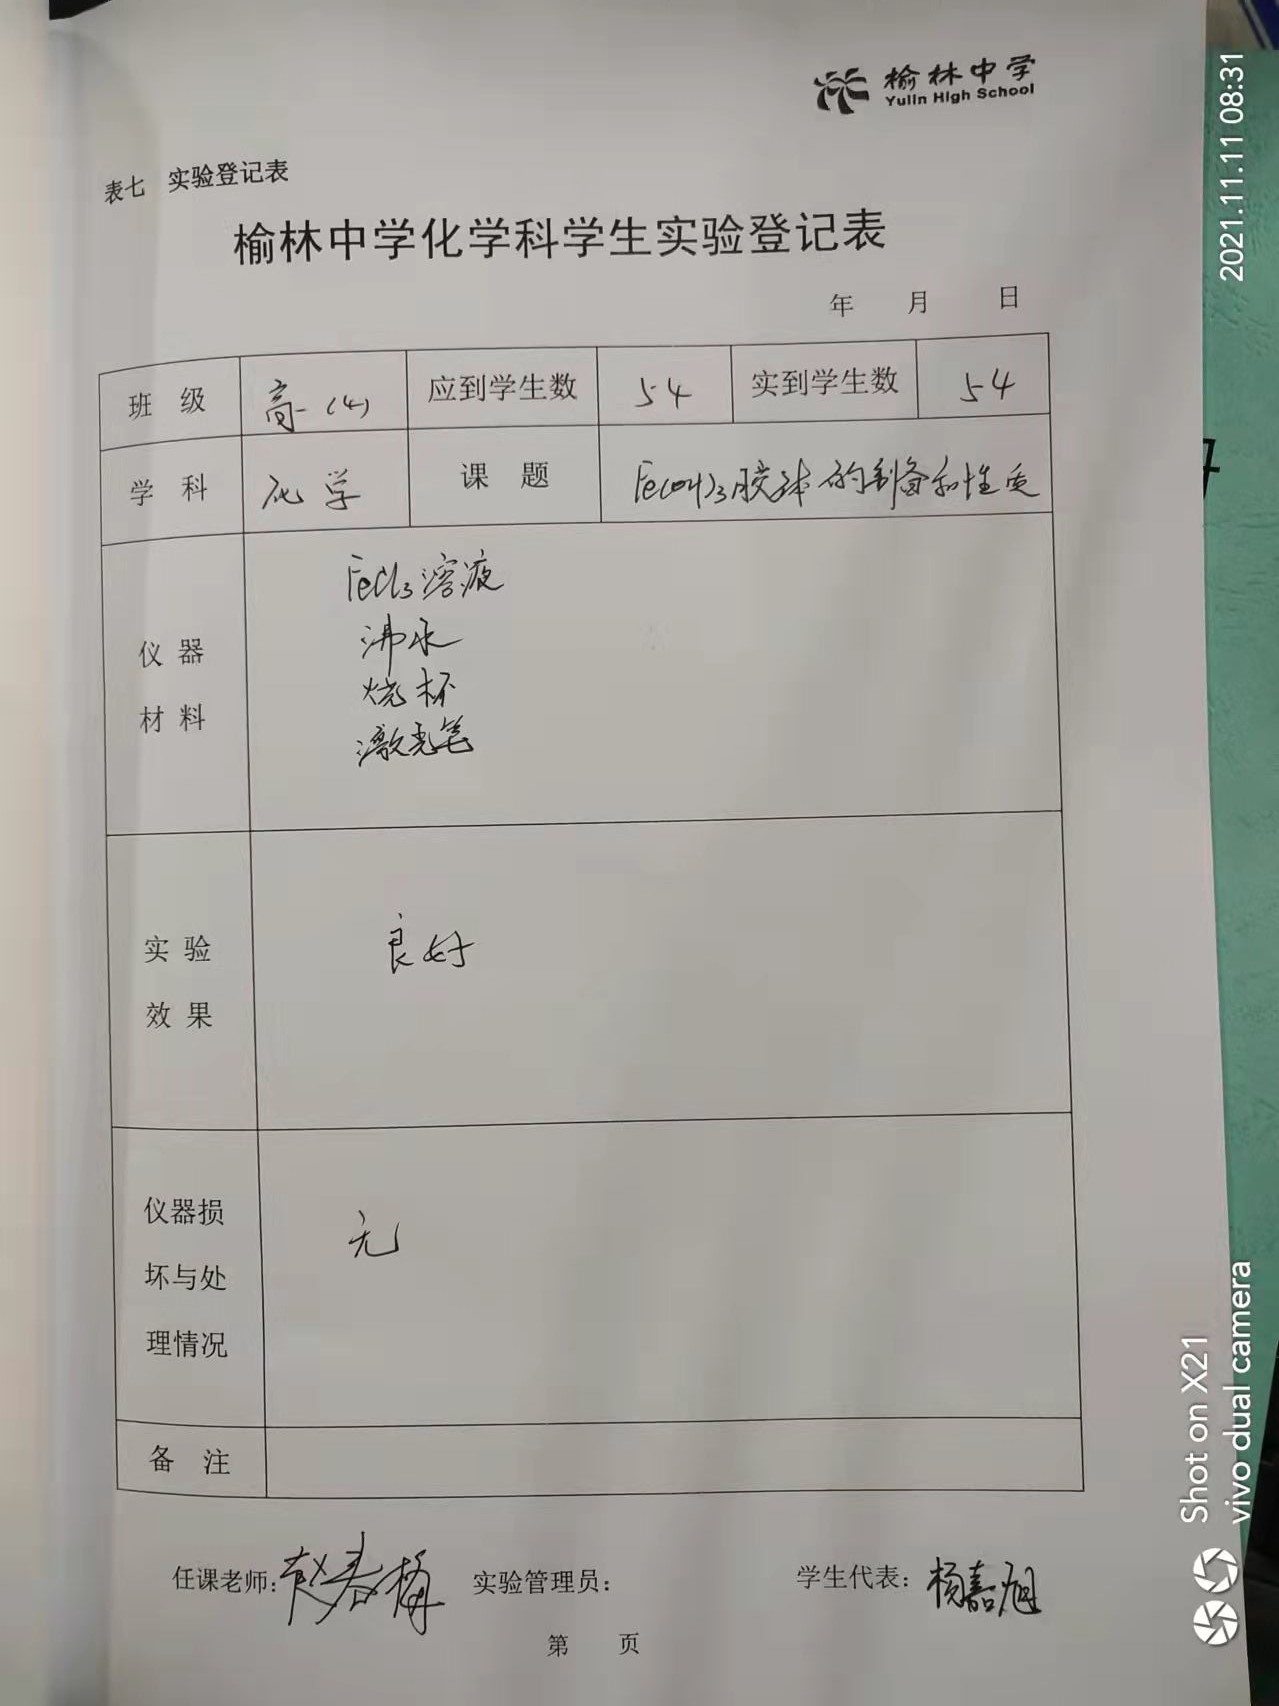 榆林中学
Yulin High School
表七 实验登记表
榆林中学化学科学生实验登记表
年 月 日
班级 高一(4) 应到学生数 54 实到学生数 54
学科 化学 课题 Fe(OH)3胶体的制备和性质
仪器
材料
FeCl3溶液
沸水
烧杯
激光笔
实验
效果
良好
仪器损
坏与处
理情况
无
备注
任课老师: 赵春梅 实验管理员: 学生代表: 杨嘉旭
第 页
2021.11.11 08:31
Shot on X21
vivo dual camera